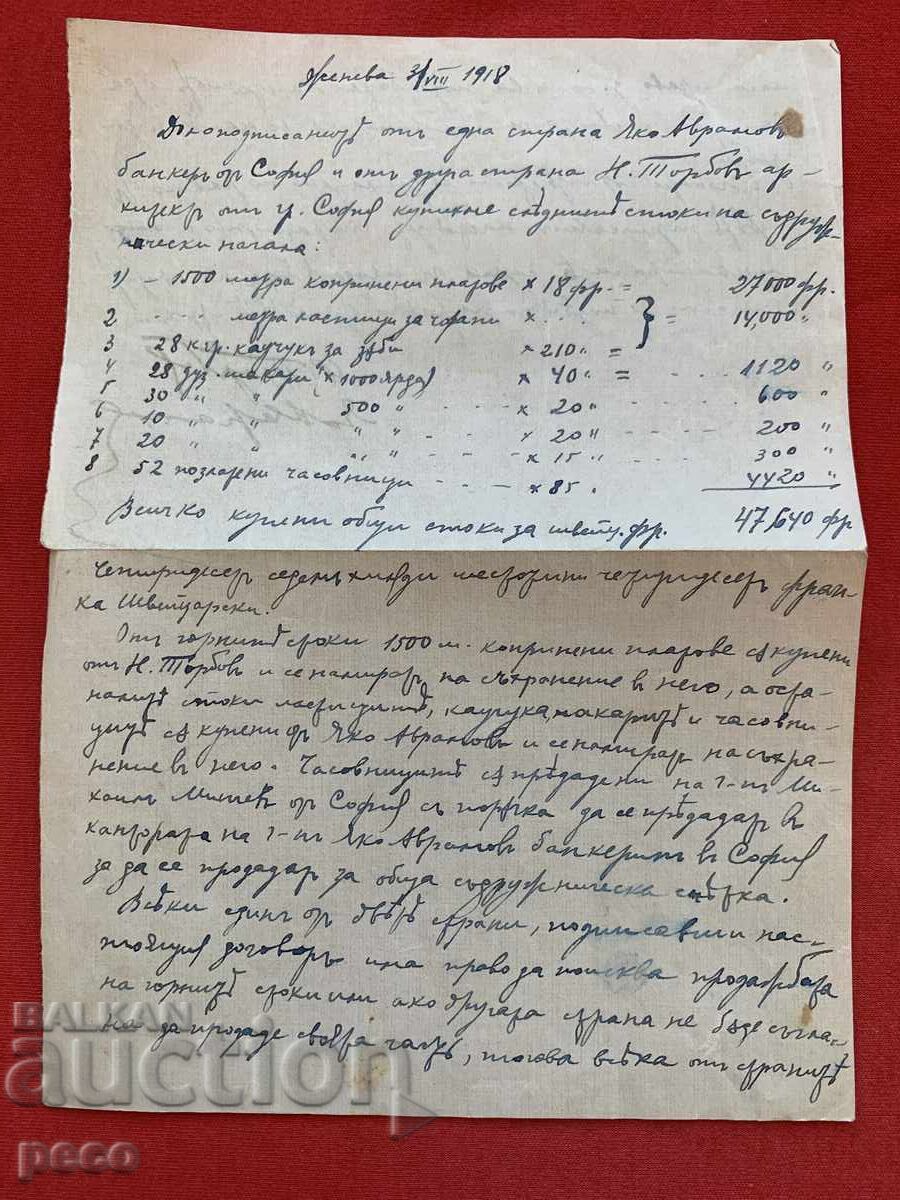 Женева 3/VIII 1918
Долоподписанитѣ отъ една страна Яко Аврамовъ
банкеръ отъ София и отъ друга страна Н. Торбовъ ар-
отъ гр. София купихме слѣднитѣ стоки на съдруж-
нически начала:
1) - 1500 метра копринени платове × 18 фр. = 27000 фр.
2 . . . . метра ластици за чорапи × . . . } = 14,000 "
3 28 кгр. каучукъ за зѣби × 210 " =
4 28 дуз. макари (× 1000 ярда) × 40 " = 1120 "
5 30 " " 500 " - - - - × 20 " - - - - 600 "
6 10 " " " " - - - × 20 " - - - - 200 "
7 20 " " " " - - - × 15 " - - - - 300 "
8 52 позлатени часовници - - - × 85 " 4420 "
Всичко купени общи стоки за швейц. фр. 47,640 фр
Четиридесеть седемь хиляди шестотини четиридесеть фран-
ка Швейцарски.
Отъ горнитѣ стоки 1500 м. копринени платове сѫ купени
отъ Н. Торбовъ и се намиратъ на съхранение в него, а оста-
налитѣ стоки ластицитѣ, каучука, макаритѣ и часовни-
цитѣ сѫ купени отъ Яко Аврамовъ и се намиратъ на съхра-
нение въ него. Часовницитѣ сѫ прѣдадени на г-нъ Ми-
хаилъ Митевъ отъ София съ порѫчка да се прѣдадатъ въ
кантората на г-нъ Яко Аврамовъ банкеринъ въ София
за да се продадатъ за обща съдружническа смѣтка.
Всѣки единъ отъ двѣтѣ страни, подписавши нас-
тоящия договоръ има право да поисква продажбата
на горнитѣ стоки или ако другата страна не бѫде съгла-
на да продаде своята часть, тогова всѣка отъ странитѣ
BALKAN
auction
peco